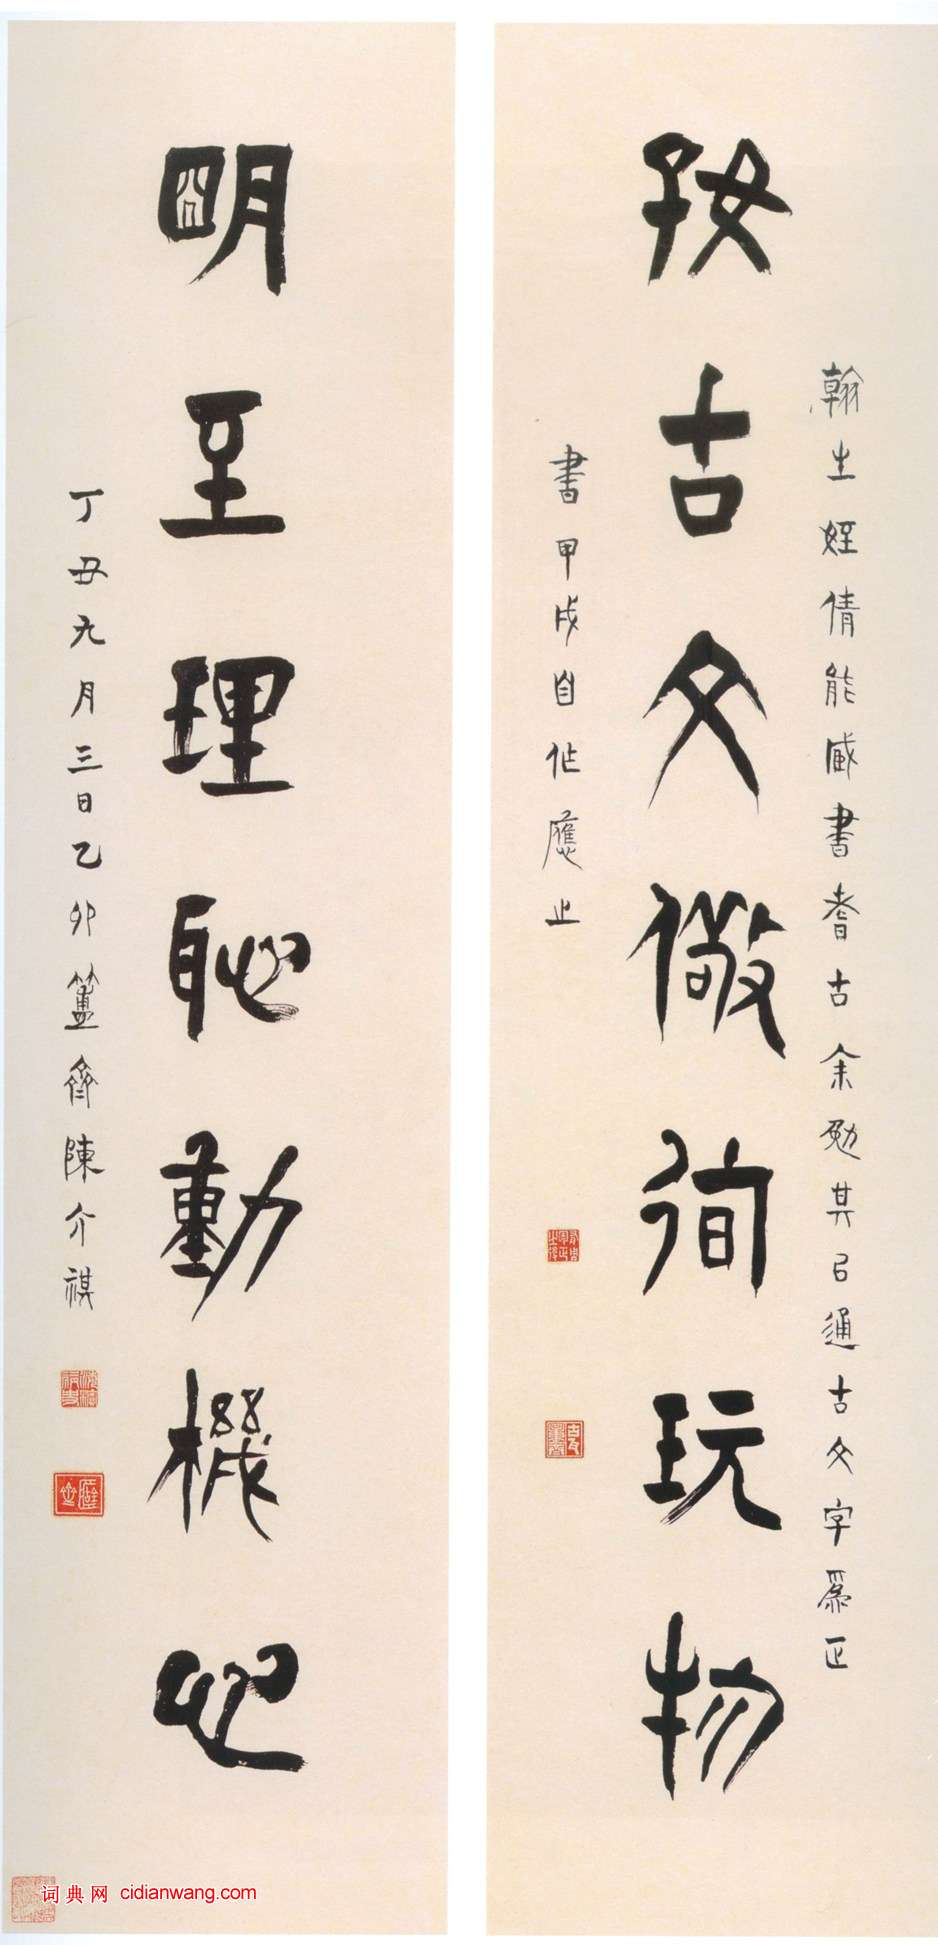 翰生姪倩能臧書耆古余勉其㠯通古文字爲正
好古文儆徇玩物
書甲戌自作應之
明至理恥動機心
丁丑九月三日乙卯簠齋陳介祺
词典网 cidianwang.com